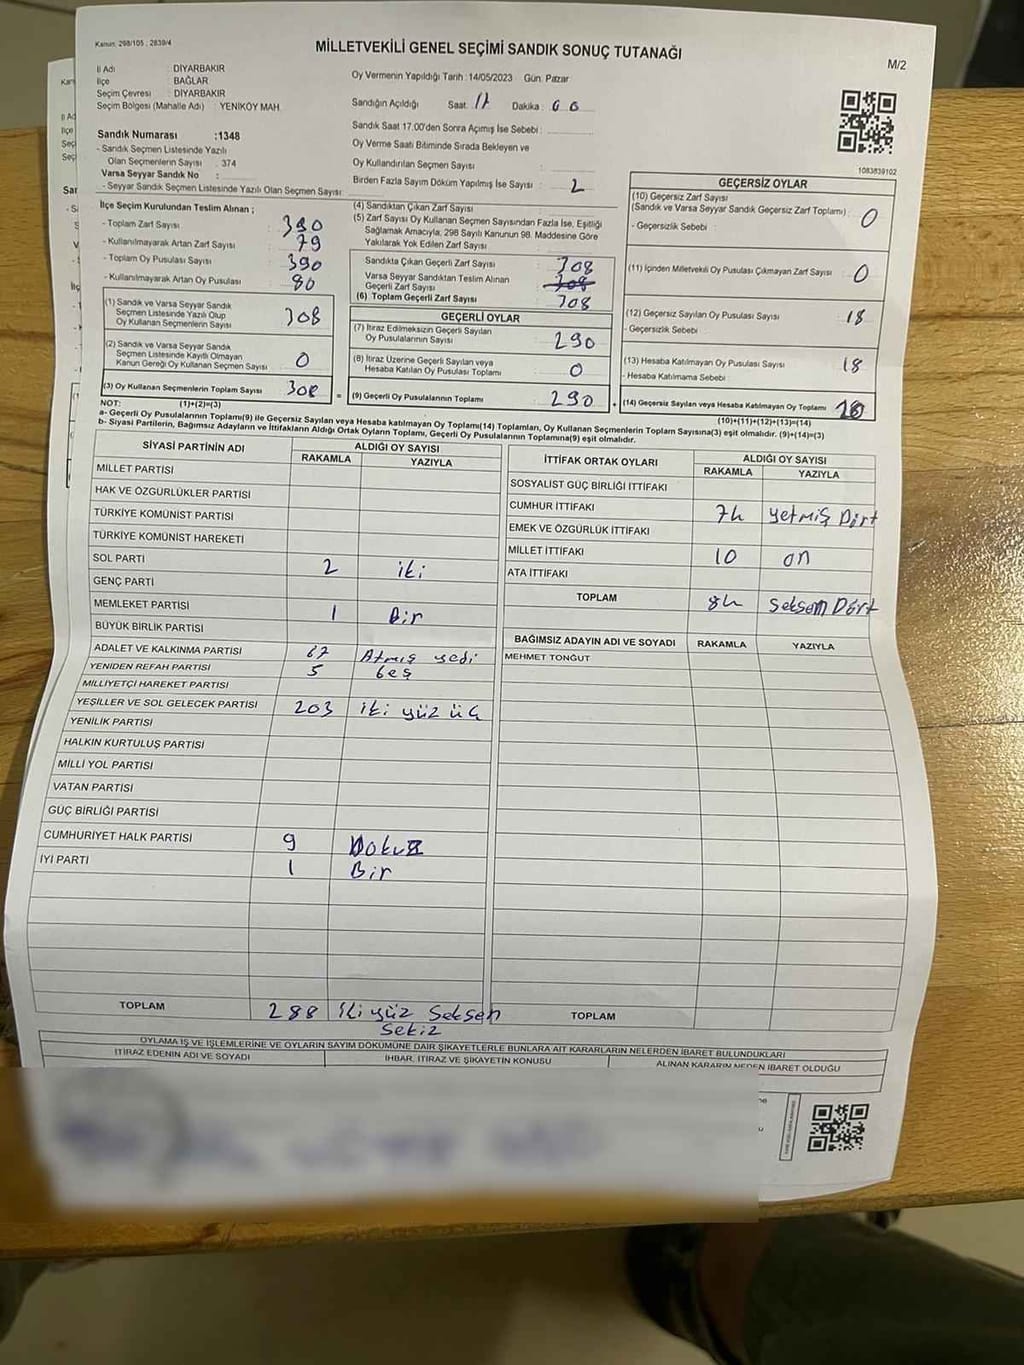 Kanun: 298/105 ; 2839/4
MİLLETVEKİLİ GENEL SEÇİMİ SANDIK SONUÇ TUTANAĞI
M/2
İl Adı : DİYARBAKIR
İlçe : BAĞLAR
Seçim Çevresi : DİYARBAKIR
Seçim Bölgesi (Mahalle Adı) : YENİKÖY MAH.
Sandık Numarası :1348
- Sandık Seçmen Listesinde Yazılı
Olan Seçmenlerin Sayısı : 374
Varsa Seyyar Sandık No :
- Seyyar Sandık Seçmen Listesinde Yazılı Olan Seçmen Sayısı:
Oy Vermenin Yapıldığı Tarih : 14/05/2023 Gün: Pazar
Sandığın Açıldığı Saat: 17 Dakika : 00
Sandık Saat 17.00'den Sonra Açılmış İse Sebebi :
Oy Verme Saati Bitiminde Sırada Bekleyen ve
Oy Kullandırılan Seçmen Sayısı :
Birden Fazla Sayım Döküm Yapılmış İse Sayısı : 2
1083839102
İlçe Seçim Kurulundan Teslim Alınan ;
- Toplam Zarf Sayısı : 390
- Kullanılmayarak Artan Zarf Sayısı : 79
- Toplam Oy Pusulası Sayısı : 390
- Kullanılmayarak Artan Oy Pusulası : 80
(1) Sandık ve Varsa Seyyar Sandık
Seçmen Listesinde Yazılı Olup
Oy Kullanan Seçmenlerin Sayısı 308
(2) Sandık ve Varsa Seyyar Sandık
Seçmen Listesinde Kayıtlı Olmayan
Kanun Gereği Oy Kullanan Seçmen Sayısı 0
(3) Oy Kullanan Seçmenlerin Toplam Sayısı 308
(1)+(2)=(3)
(4) Sandıktan Çıkan Zarf Sayısı
(5) Zarf Sayısı Oy Kullanan Seçmen Sayısından Fazla İse, Eşitliği
Sağlamak Amacıyla, 298 Sayılı Kanunun 98. Maddesine Göre
Yakılarak Yok Edilen Zarf Sayısı
Sandıkta Çıkan Geçerli Zarf Sayısı 308
Varsa Seyyar Sandıktan Teslim Alınan
Geçerli Zarf Sayısı 308
(6) Toplam Geçerli Zarf Sayısı 308
GEÇERLİ OYLAR
(7) İtiraz Edilmeksizin Geçerli Sayılan
Oy Pusulalarının Sayısı 290
(8) İtiraz Üzerine Geçerli Sayılan veya
Hesaba Katılan Oy Pusulası Toplamı 0
= (9) Geçerli Oy Pusulalarının Toplamı 290
GEÇERSİZ OYLAR
(10) Geçersiz Zarf Sayısı
(Sandık ve Varsa Seyyar Sandık Geçersiz Zarf Toplamı) : 0
- Geçersizlik Sebebi :
(11) İçinden Milletvekili Oy Pusulası Çıkmayan Zarf Sayısı : 0
(12) Geçersiz Sayılan Oy Pusulası Sayısı : 18
- Geçersizlik Sebebi :
(13) Hesaba Katılmayan Oy Pusulası Sayısı : 18
- Hesaba Katılmama Sebebi :
(14) Geçersiz Sayılan veya Hesaba Katılmayan Oy Toplamı 18
(10)+(11)+(12)+(13)=(14)
NOT:
a- Geçerli Oy Pusulalarının Toplamı(9) ile Geçersiz Sayılan veya Hesaba katılmayan Oy Toplamı(14) Toplamları, Oy Kullanan Seçmenlerin Toplam Sayısına(3) eşit olmalıdır. (9)+(14)=(3)
b- Siyasi Partilerin, Bağımsız Adayların ve İttifakların Aldığı Ortak Oyların Toplamı, Geçerli Oy Pusulalarının Toplamına(9) eşit olmalıdır.
SİYASİ PARTİNİN ADI ALDIĞI OY SAYISI
RAKAMLA YAZIYLA
MİLLET PARTİSİ
HAK VE ÖZGÜRLÜKLER PARTİSİ
TÜRKİYE KOMÜNİST PARTİSİ
TÜRKİYE KOMÜNİST HAREKETİ
SOL PARTİ 2 iki
GENÇ PARTİ
MEMLEKET PARTİSİ 1 Bir
BÜYÜK BİRLİK PARTİSİ
ADALET VE KALKINMA PARTİSİ 67 Atmış yedi
YENİDEN REFAH PARTİSİ 5 beş
MİLLİYETÇİ HAREKET PARTİSİ
YEŞİLLER VE SOL GELECEK PARTİSİ 203 iki yüz üç
YENİLİK PARTİSİ
HALKIN KURTULUŞ PARTİSİ
MİLLİ YOL PARTİSİ
VATAN PARTİSİ
GÜÇ BİRLİĞİ PARTİSİ
CUMHURİYET HALK PARTİSİ 9 Dokuz
İYİ PARTİ 1 Bir
TOPLAM 288 iki yüz Seksen
Sekiz
İTTİFAK ORTAK OYLARI ALDIĞI OY SAYISI
RAKAMLA YAZIYLA
SOSYALİST GÜÇ BİRLİĞİ İTTİFAKI
CUMHUR İTTİFAKI 74 yetmiş Dört
EMEK VE ÖZGÜRLÜK İTTİFAKI
MİLLET İTTİFAKI 10 on
ATA İTTİFAKI
TOPLAM 84 Seksen Dört
BAĞIMSIZ ADAYIN ADI VE SOYADI RAKAMLA YAZIYLA
MEHMET TONĞUT
TOPLAM
OYLAMA İŞ VE İŞLEMLERİNE VE OYLARIN SAYIM DÖKÜMÜNE DAİR ŞİKAYETLERLE BUNLARA AİT KARARLARIN NELERDEN İBARET BULUNDUKLARI
İTİRAZ EDENİN ADI VE SOYADI İHBAR, İTİRAZ VE ŞİKAYETİN KONUSU ALINAN KARARIN NEDEN İBARET OLDUĞU